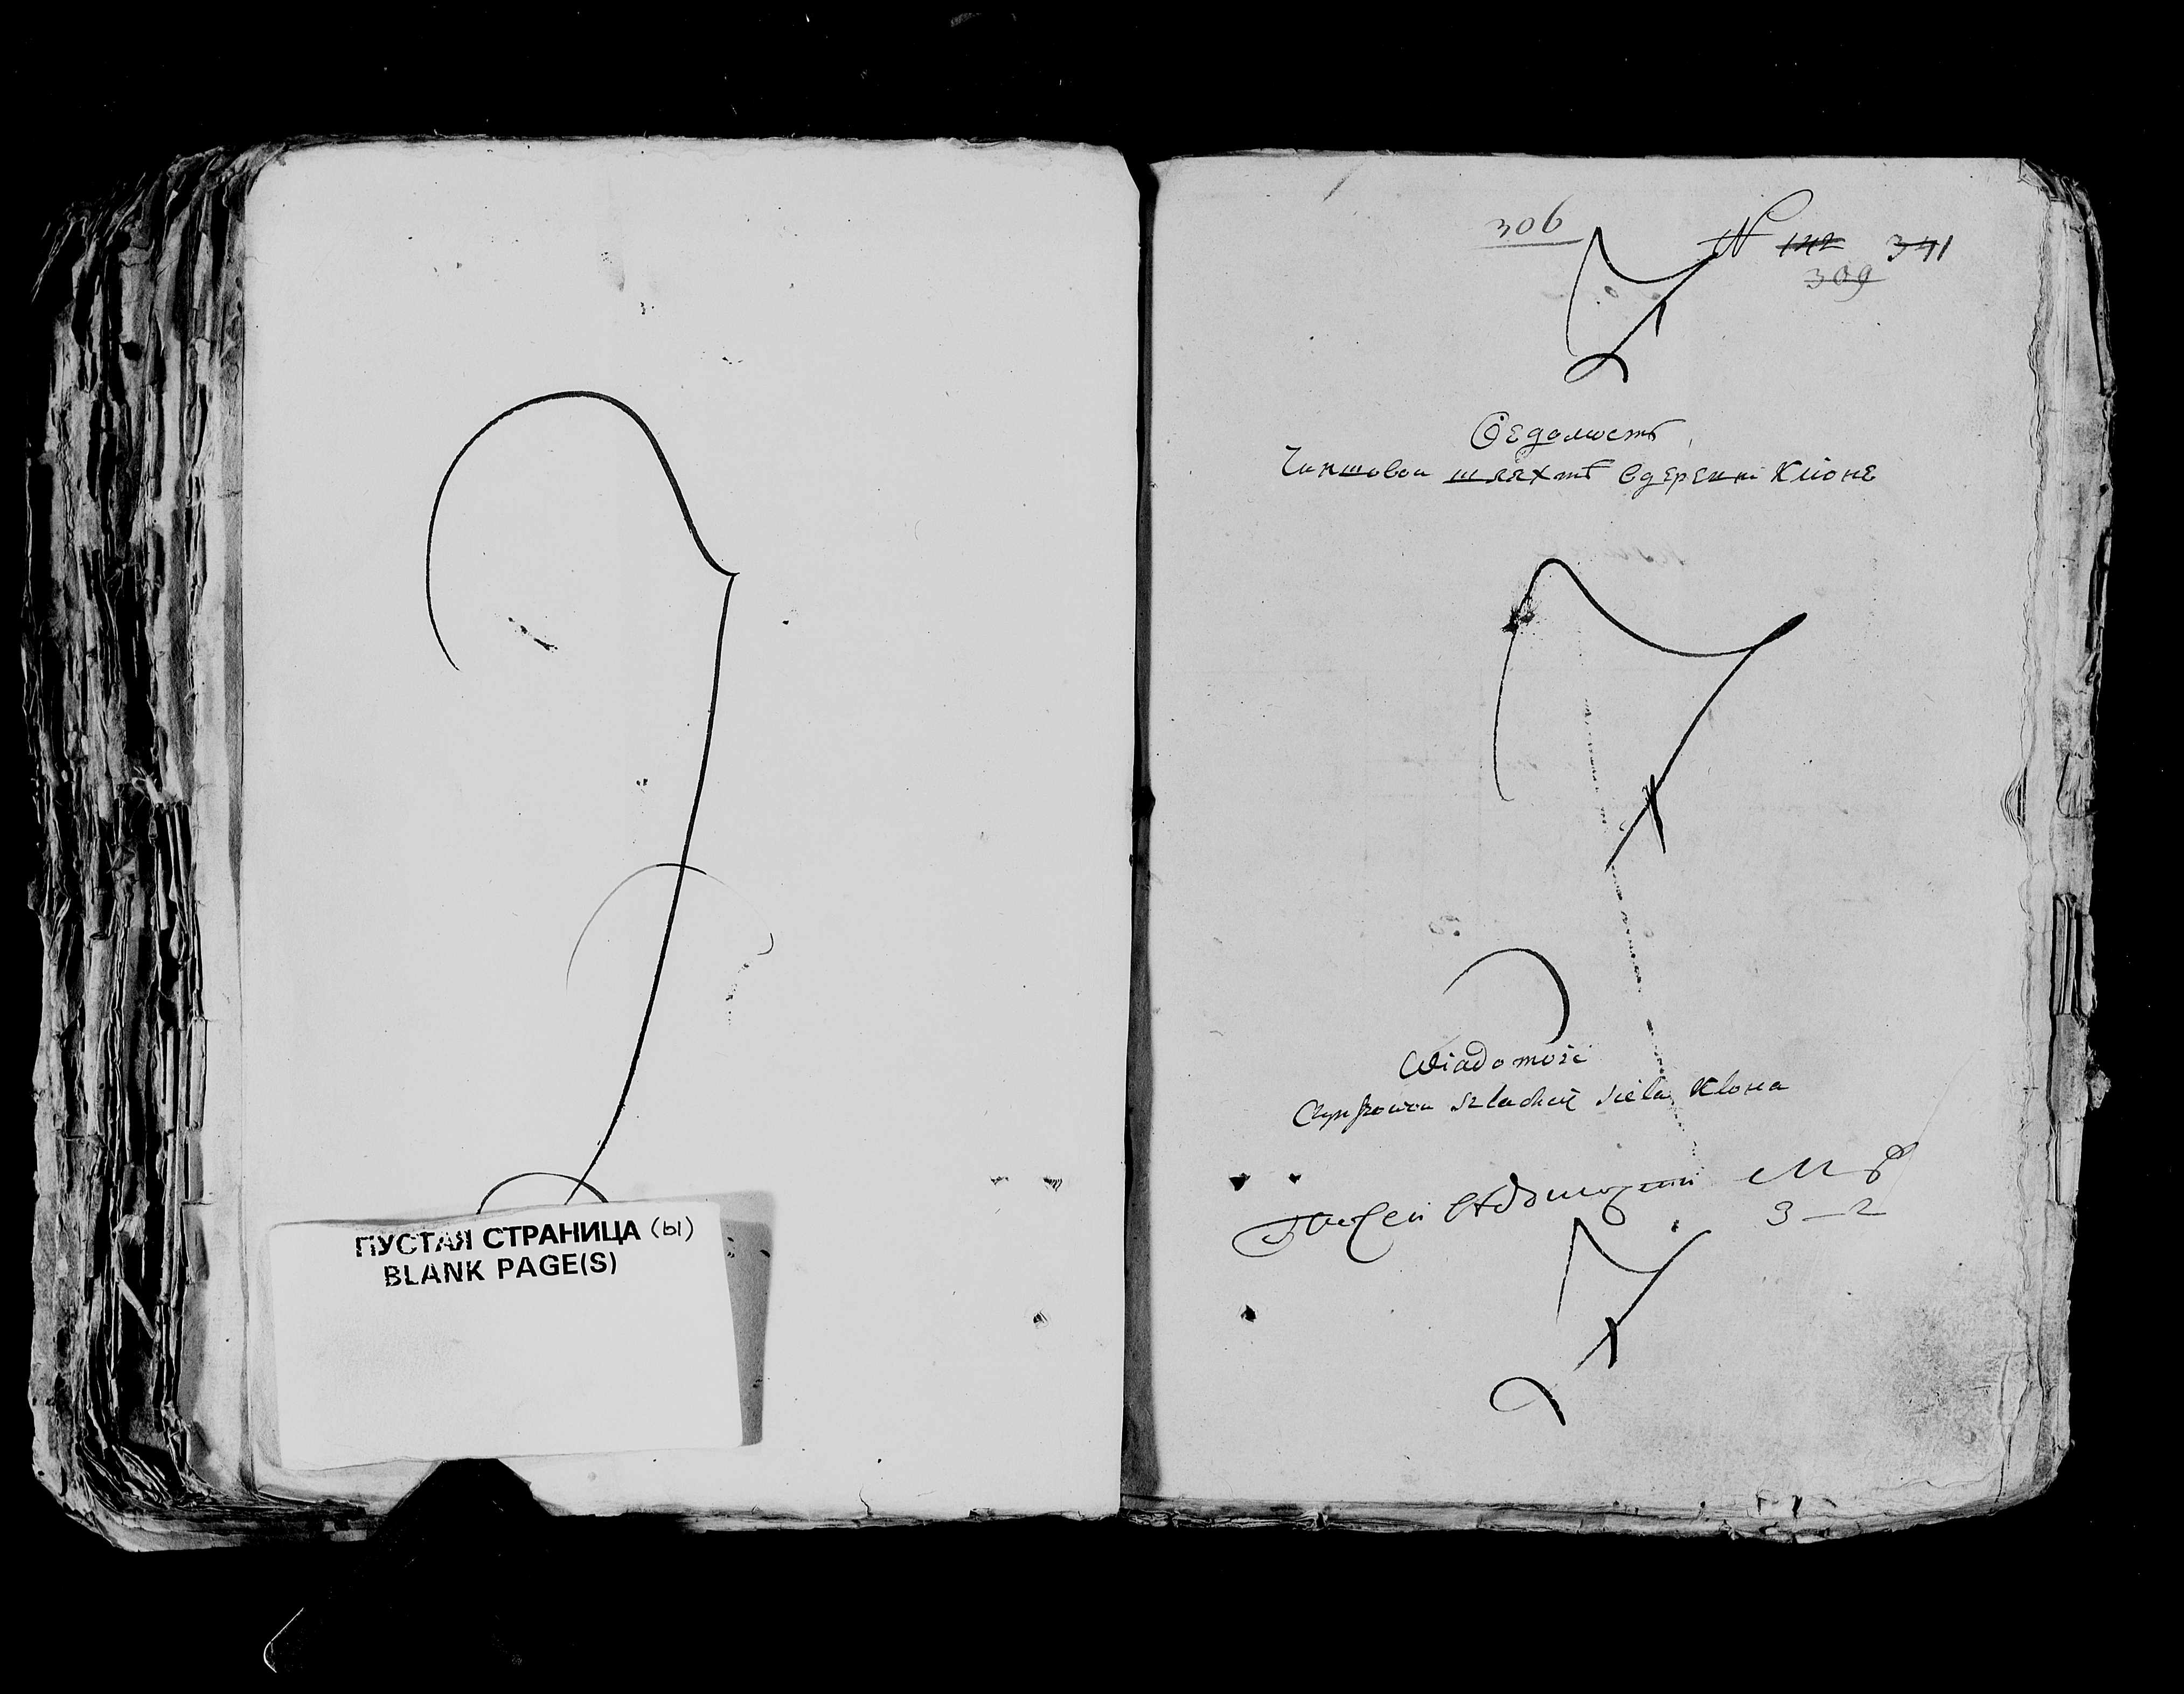 ПУСТАЯ СТРАНИЦА (Ы)
BLANK PAGE(S)
306 N 142 341
309
Ведомость
Чиншовои шляхтѣ вдеревни Клоне
Wiadomość
Czynszowou szlachcie siela Klona
М
3-2